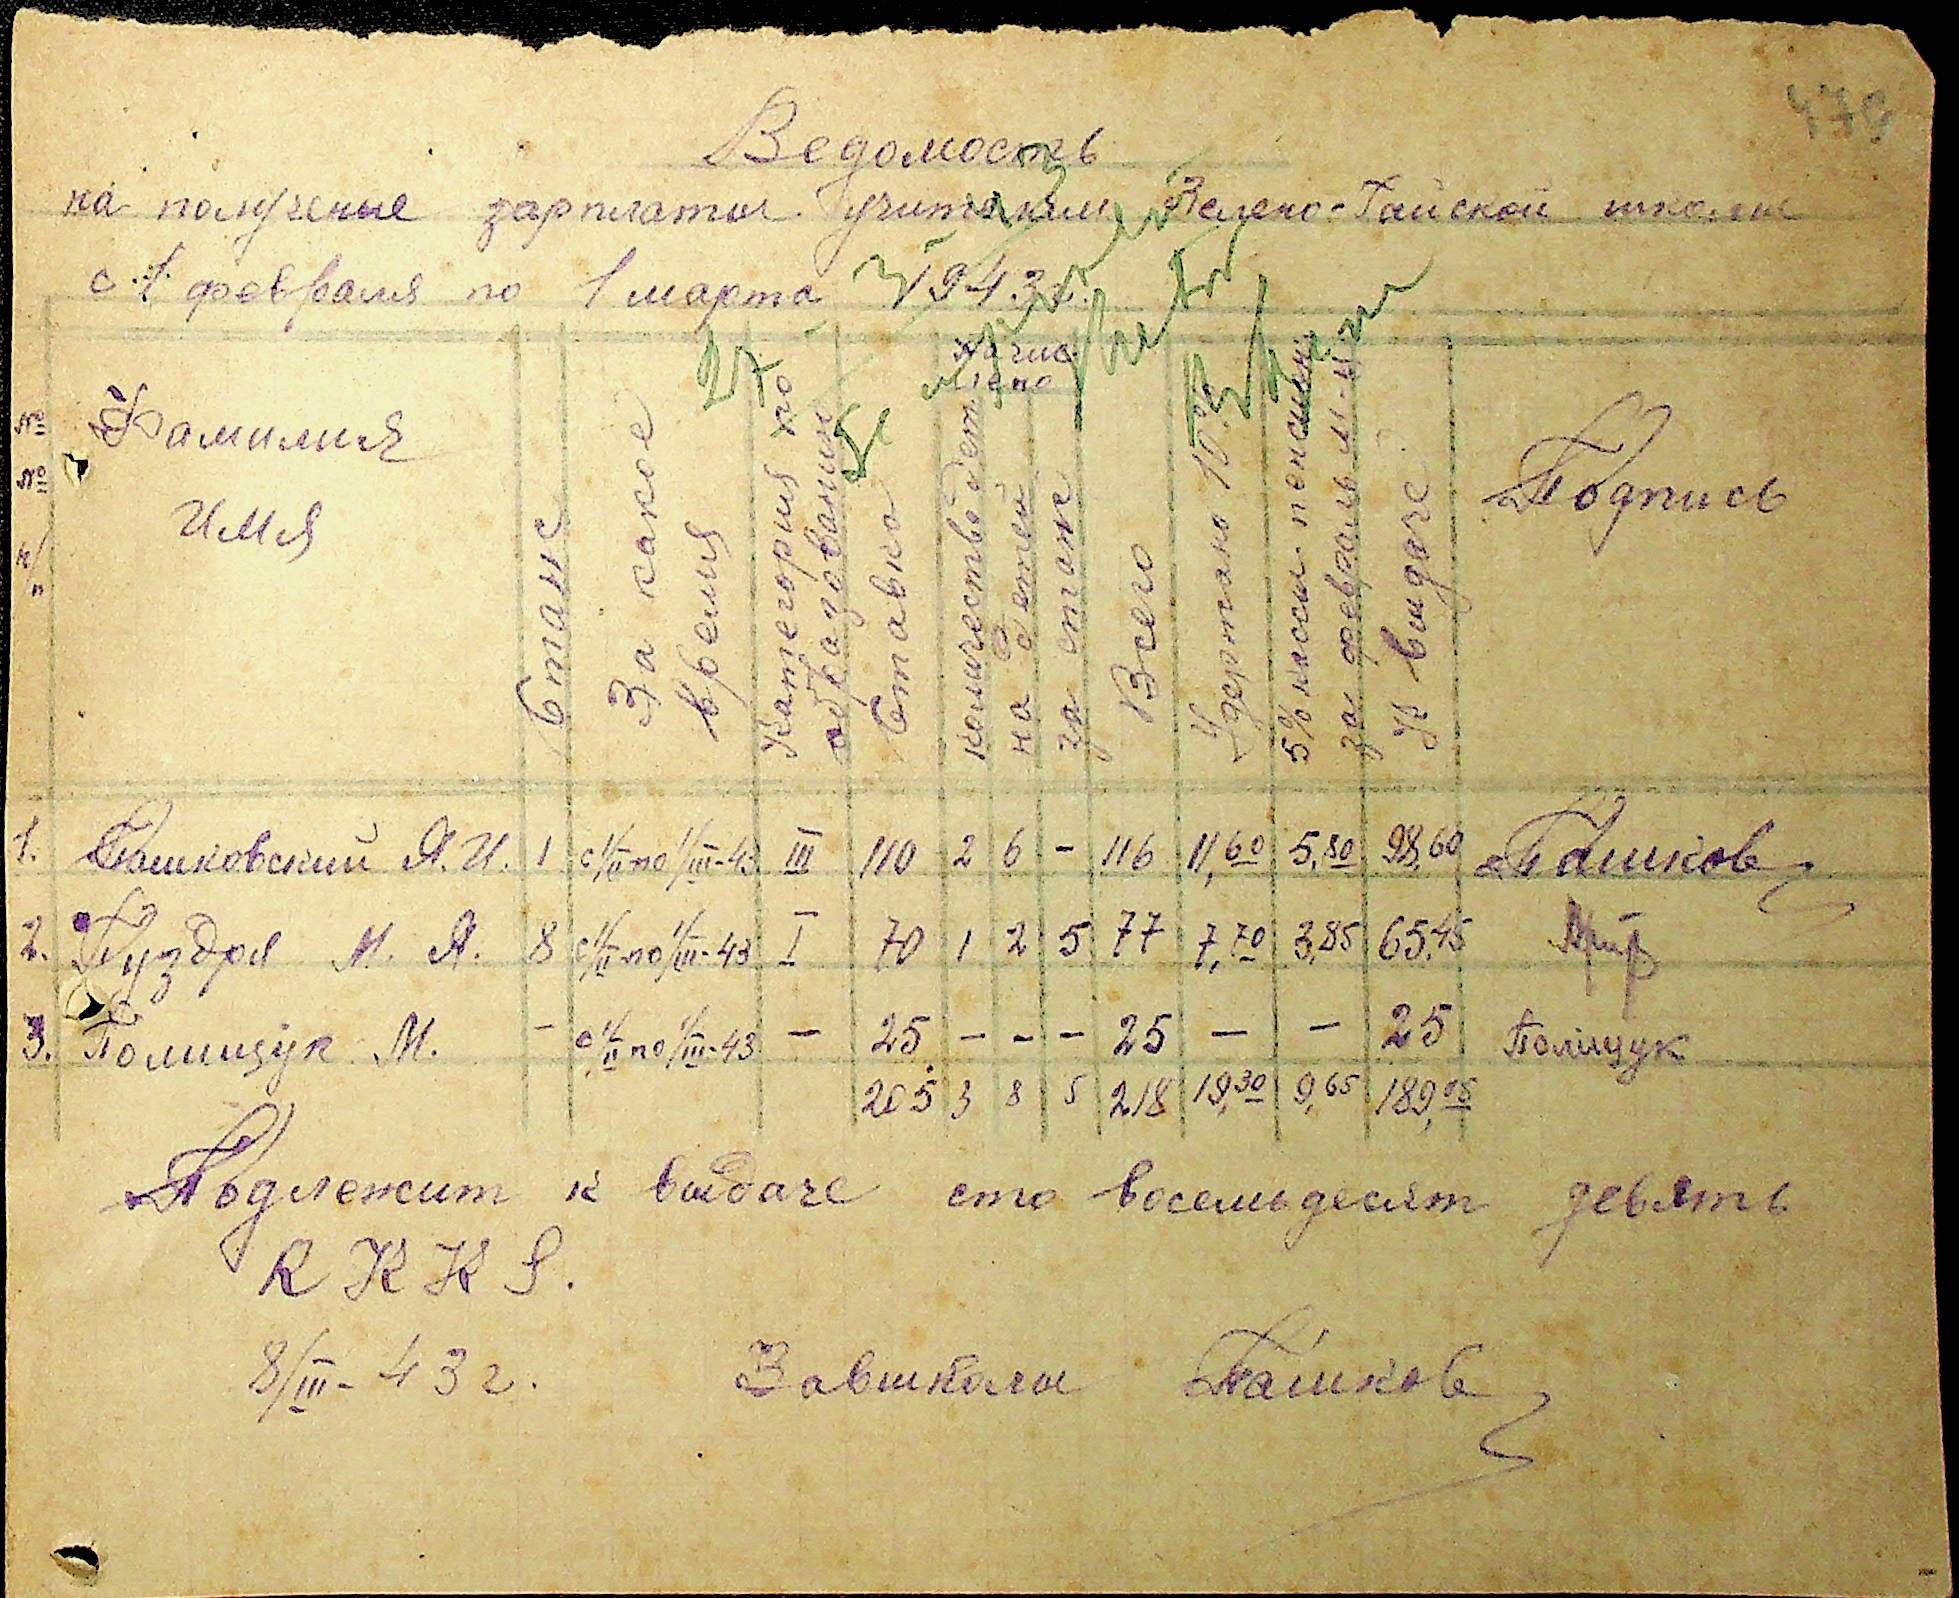 479
Ведомость
на получение зарплаты учителям Зелено-Гайской школы
с 1 февраля по 1 марта 1943 г.
№ № п/п
Фамилия
имя
Стаж
За какое время
Категория по образованию
Ставка
Начислено
количество дет.
на детей
за стаж
Всего
Удержано 10%
5% кассы пенсийн. за февраль м-ц
К выдаче
Подпись
1. Пашковский Я. И. 1 с 1/II по 1/III-43 III 110 2 6 - 116 11,60 5,80 98,60 Пашков
2. Гуздря М. Я. 8 с 1/II по 1/III-43 I 70 1 2 5 77 7,70 3,85 65,45
3. Полищук М. - с 1/II по 1/III-43 - 25 - - - 25 - - 25 Поліщук
205 3 8 5 218 19,30 9,65 189,05
Подлежит к выдаче сто восемьдесят девять
R K K S.
8/III-43 г. Завшколы Пашков